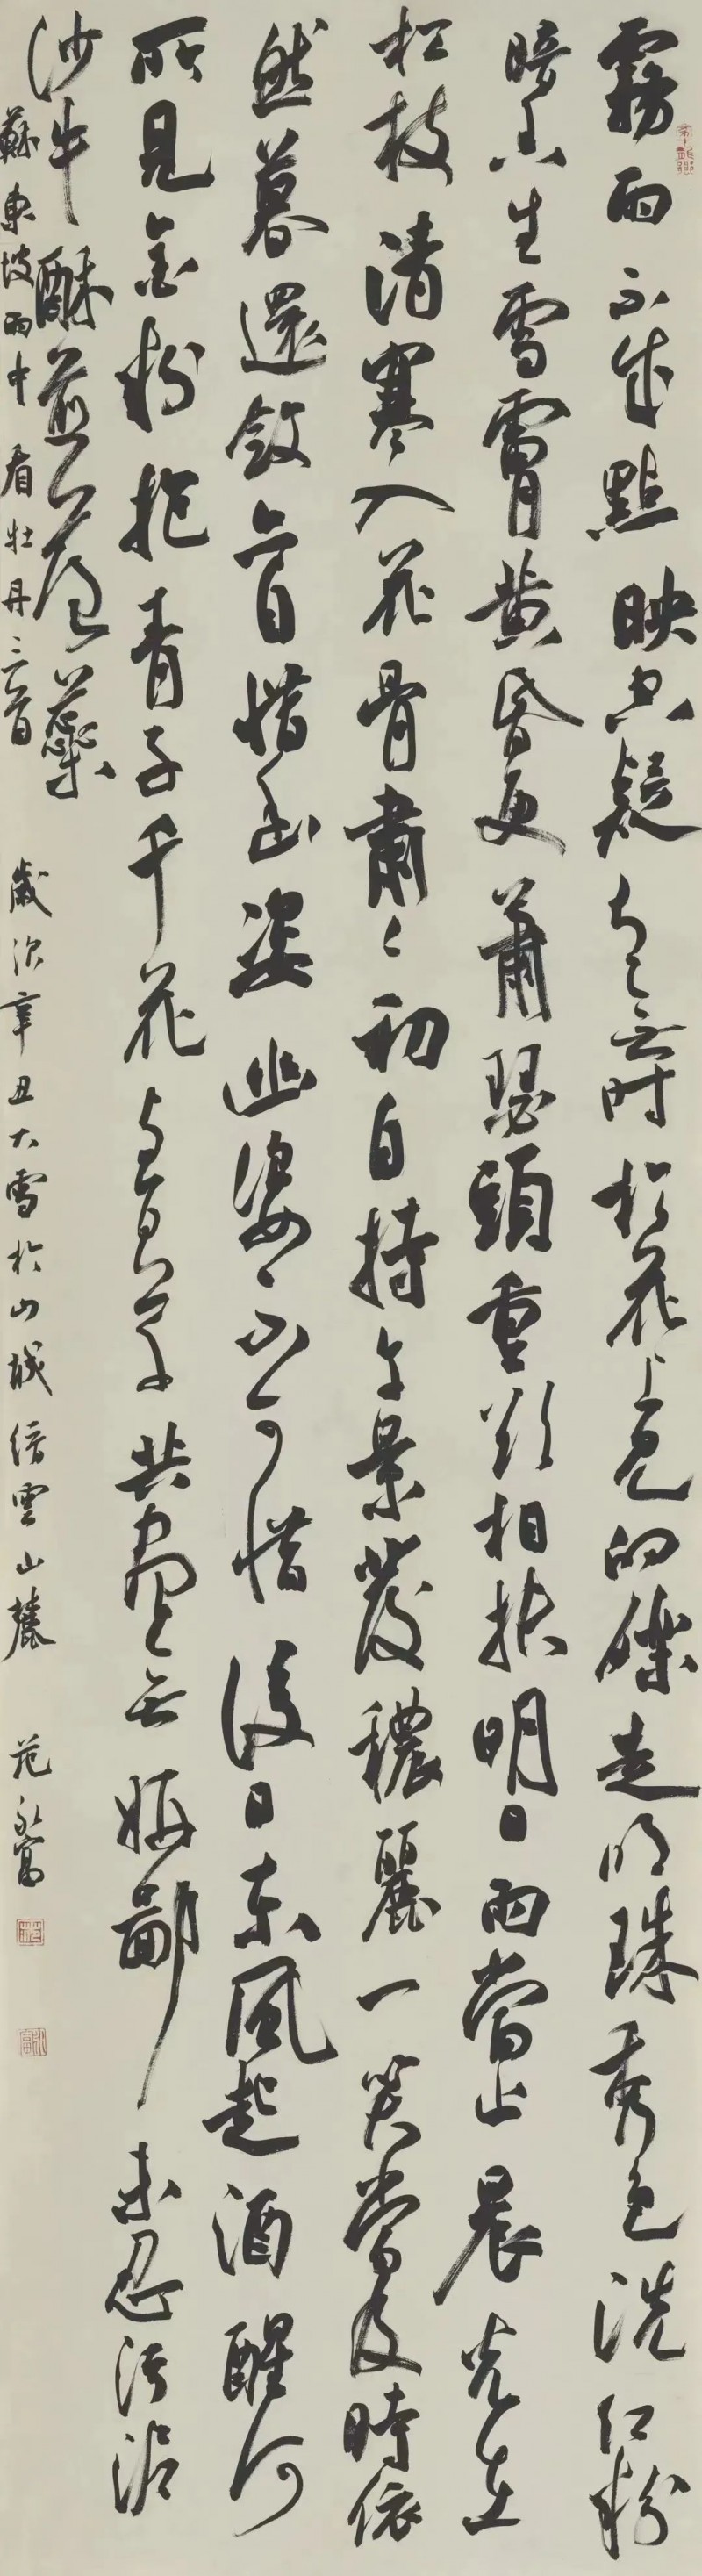 霧雨不成點映空疑有無時於花上見的礫走明珠秀色洗紅粉
暗香生雪膚黃昏更蕭瑟頭重欲相扶明日雨當止晨光在
松枝清寒入花骨肅々初自持午景發穠麗一笑當及時依
然暮還斂亦自惜幽姿幽姿不可惜後日東風起酒醒何
所見金粉抱青子千花與百草共盡無妍鄙未忍污泥
沙牛酥煎落蘂
蘇東坡雨中看牡丹三首 歲次辛丑大雪於山城縉雲山麓 范永富